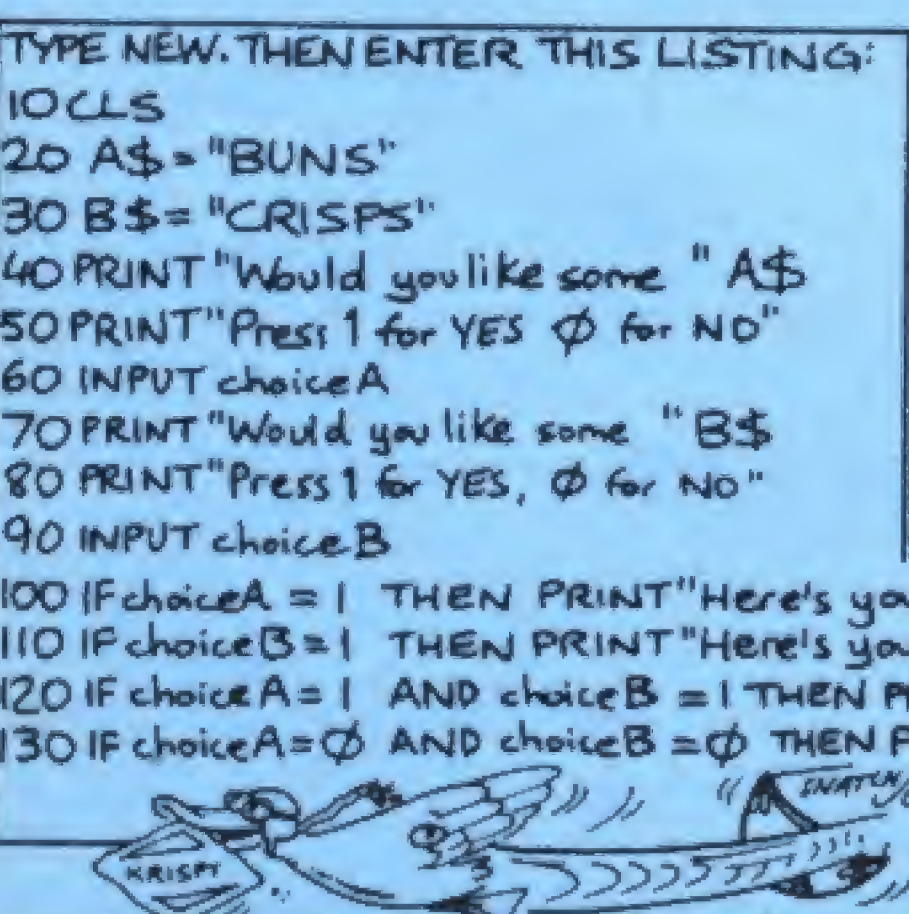 TYPE NEW. THEN ENTER THIS LISTING:
10 CLS
20 A$ = "BUNS"
30 B$ = "CRISPS"
40 PRINT "Would you like some " A$
50 PRINT "Press 1 for YES Ø for NO"
60 INPUT choiceA
70 PRINT "Would you like some " B$
80 PRINT "Press 1 for YES, Ø for NO"
90 INPUT choiceB
100 IF choiceA = 1 THEN PRINT "Here's you
110 IF choiceB = 1 THEN PRINT "Here's you
120 IF choiceA = 1 AND choiceB = 1 THEN P
130 IF choiceA = Ø AND choiceB = Ø THEN P
SNATCH
KRISPY